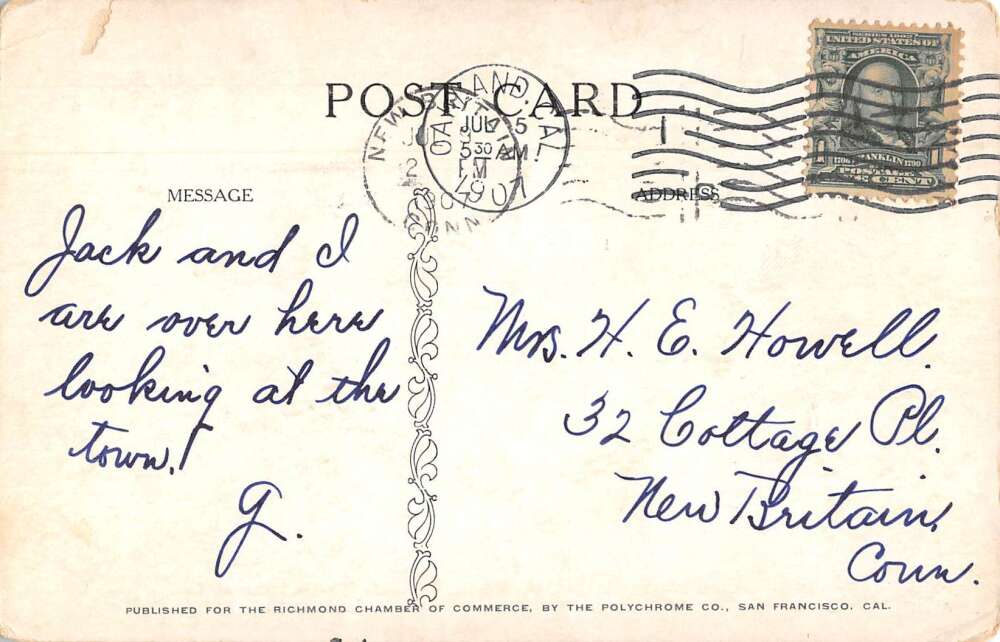 POST CARD
OAKLAND, CAL.
JUL 5
5 30 AM
1907
NEW BRITAIN
CONN
SERIES 1902
UNITED STATES OF
AMERICA
1706 FRANKLIN 1790
POSTAGE
MESSAGE
ADDRESS
Jack and I
are over here
looking at the
town.
G.
Mrs. H. E. Howell.
32 Cottage Pl.
New Britain,
Conn.
PUBLISHED FOR THE RICHMOND CHAMBER OF COMMERCE, BY THE POLYCHROME CO., SAN FRANCISCO, CAL.